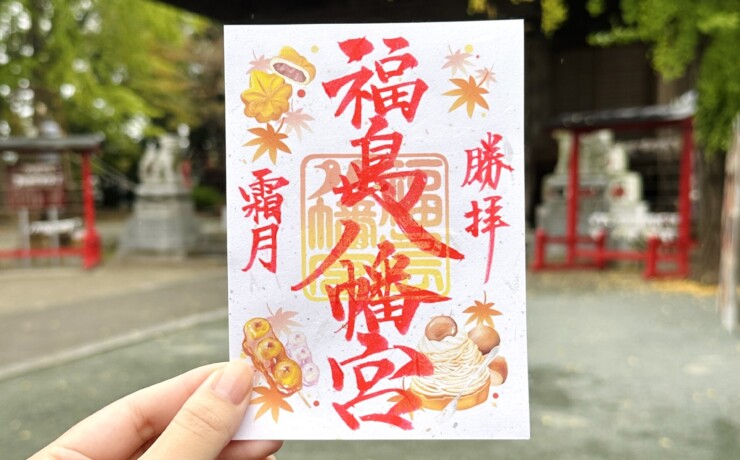 勝拝
福島八幡宮
霜月